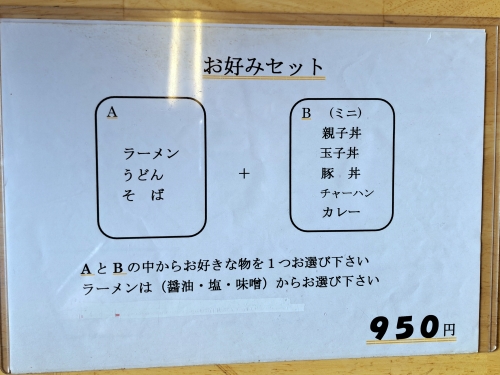 お好みセット
A
ラーメン
うどん
そ　ば
＋
B （ミニ）
親子丼
玉子丼
豚　丼
チャーハン
カレー
AとBの中からお好きな物を１つお選び下さい
ラーメンは（醤油・塩・味噌）からお選び下さい
950円